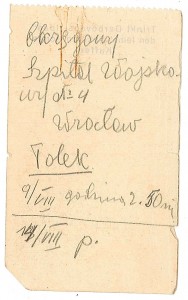 Okręgowy
Szpital Wojsko-
wy № 4
Wrocław
Tolek
9/VIII godzina 2.50
/VIII p.